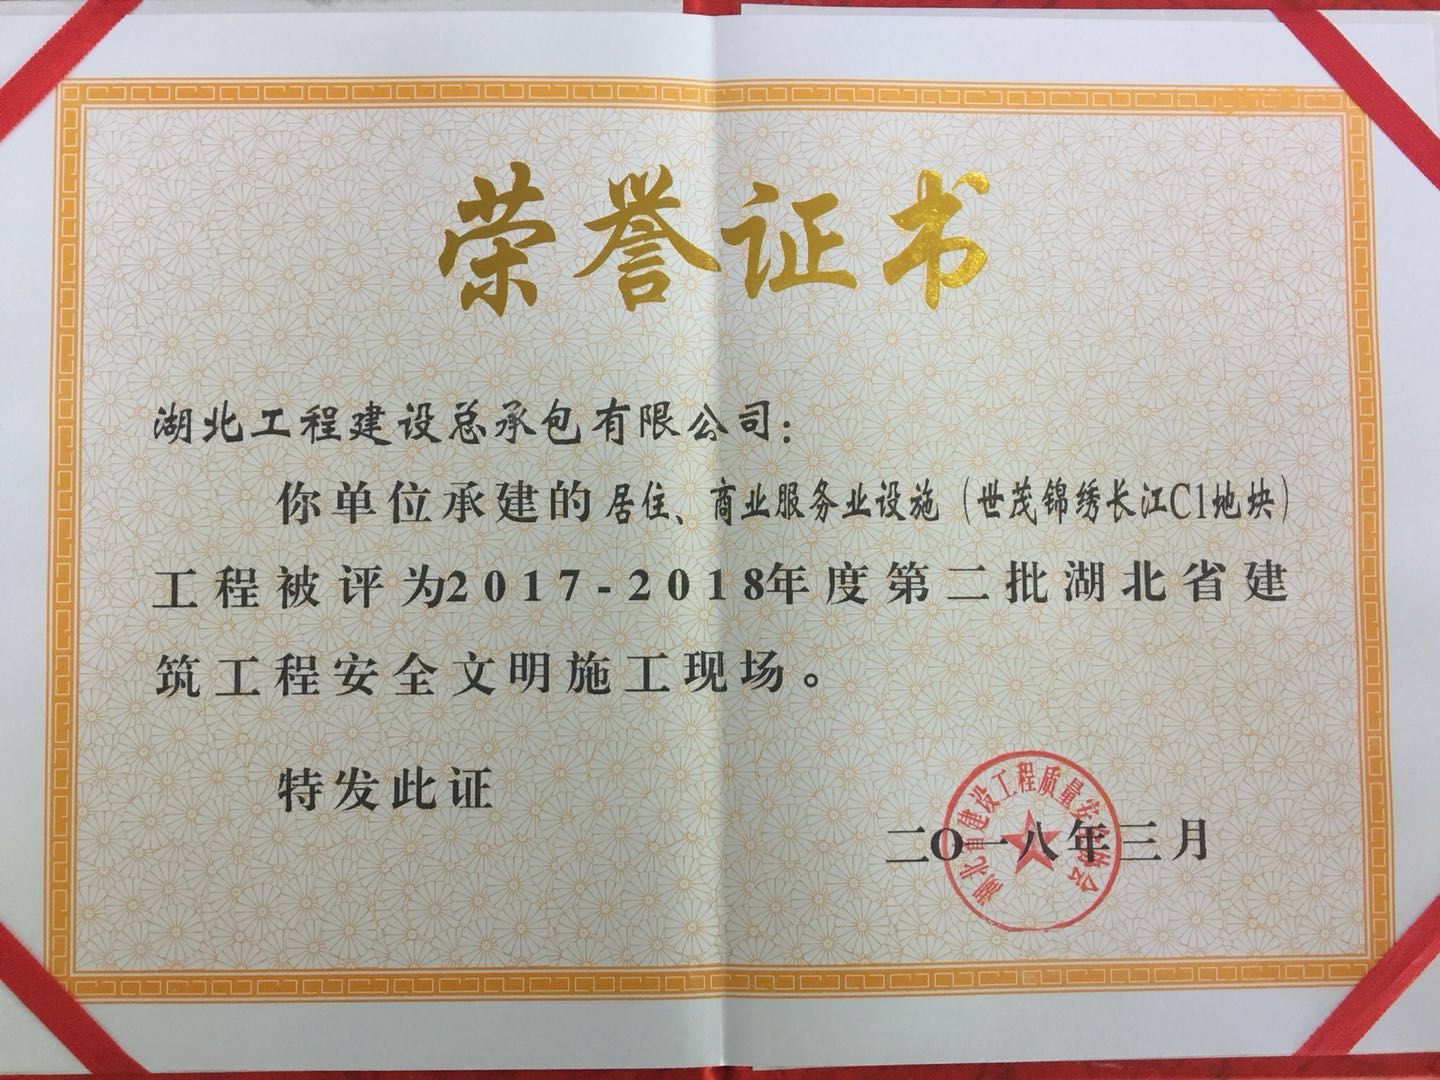 荣誉证书
湖北工程建设总承包有限公司：
你单位承建的居住、商业服务业设施（世茂锦绣长江C1地块）
工程被评为2017-2018年度第二批湖北省建
筑工程安全文明施工现场。
特发此证
湖北省建设工程质量安全协会
二〇一八年三月